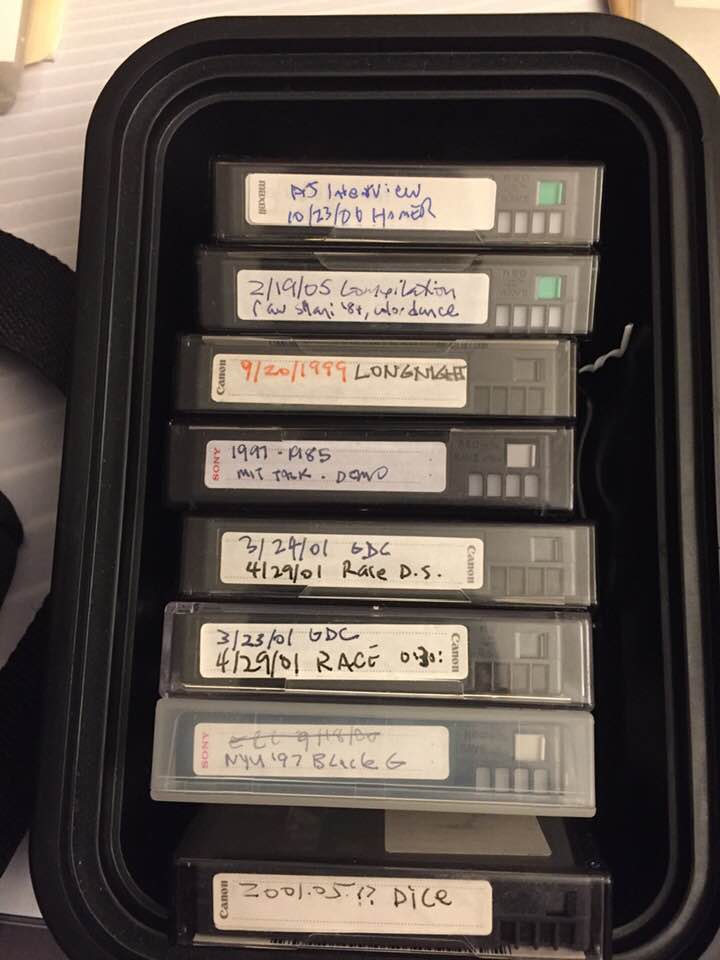 maxell
Interview
10/23/00 HOMER
2/19/05 Compilation
dance
Canon
9/20/1999 LONGNIGHT
SONY
1997 -
MIT TALK - DEMO
3/24/01 GDC
4/29/01 Race D.S.
Canon
3/23/01 GDC
4/29/01 RACE
Canon
SONY
NYU '97 Black G
Canon
2001.05.?? Dice